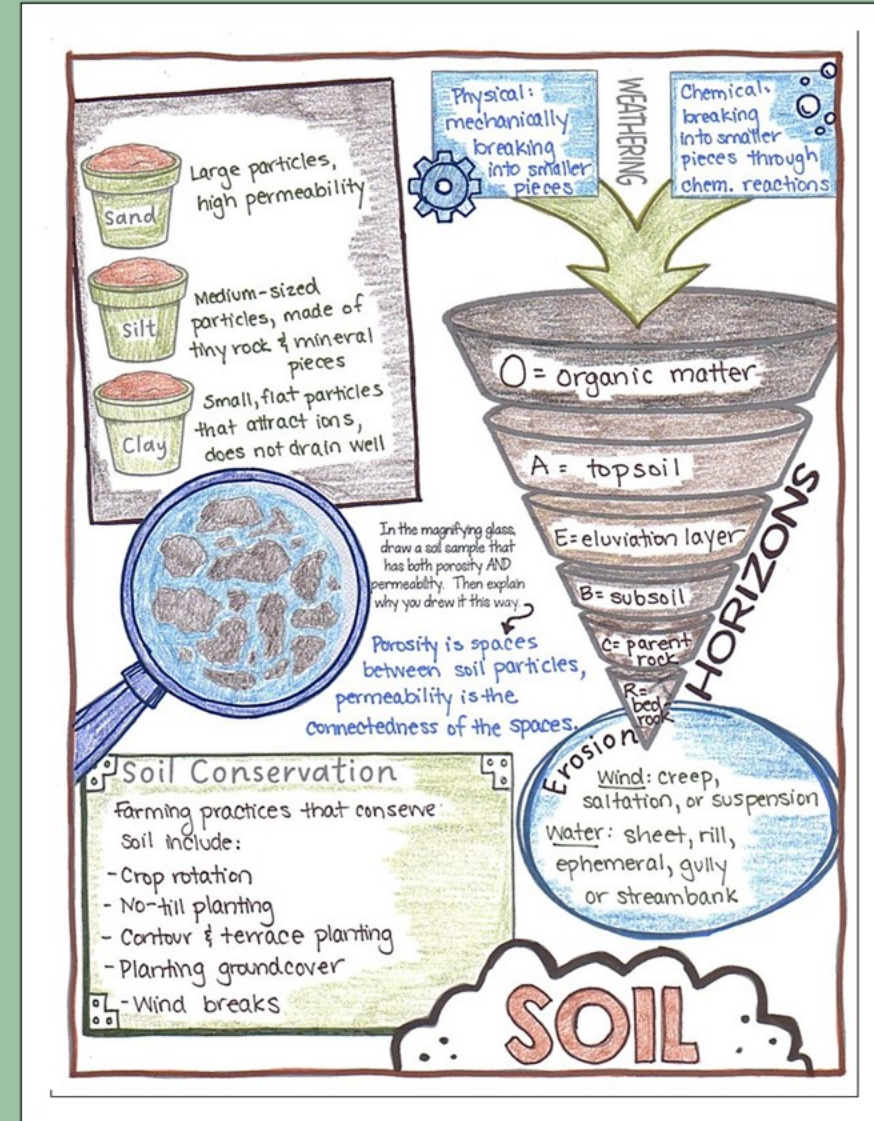 Sand
Large particles,
high permeability
Silt
Medium-sized
particles, made of
tiny rock & mineral
pieces
Clay
Small, flat particles
that attract ions,
does not drain well
Physical:
mechanically
breaking
into smaller
pieces
WEATHERING
Chemical:
breaking
into smaller
pieces through
chem. reactions
O = organic matter
A = topsoil
E = eluviation layer
B = subsoil
C = parent
rock
R =
bed-
rock
HORIZONS
In the magnifying glass,
draw a soil sample that
has both porosity AND
permeability. Then explain
why you drew it this way.
Porosity is spaces
between soil particles,
permeability is the
connectedness of the spaces.
Erosion
Wind: creep,
saltation, or suspension
Water: sheet, rill,
ephemeral, gully
or streambank
Soil Conservation
Farming practices that conserve
soil include:
- Crop rotation
- No-till planting
- Contour & terrace planting
- Planting groundcover
- Wind breaks
SOIL